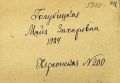 Голубицкая
Майя Захаровна
1924
Херсонская №200